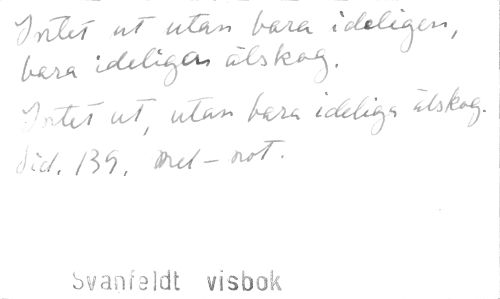 Intet ut utan bara ideligen,
bara ideligen älskog.
Intet ut, utan bara ideliga älskog.
Sid. 139. mel-not.
Svanfeldt visbok